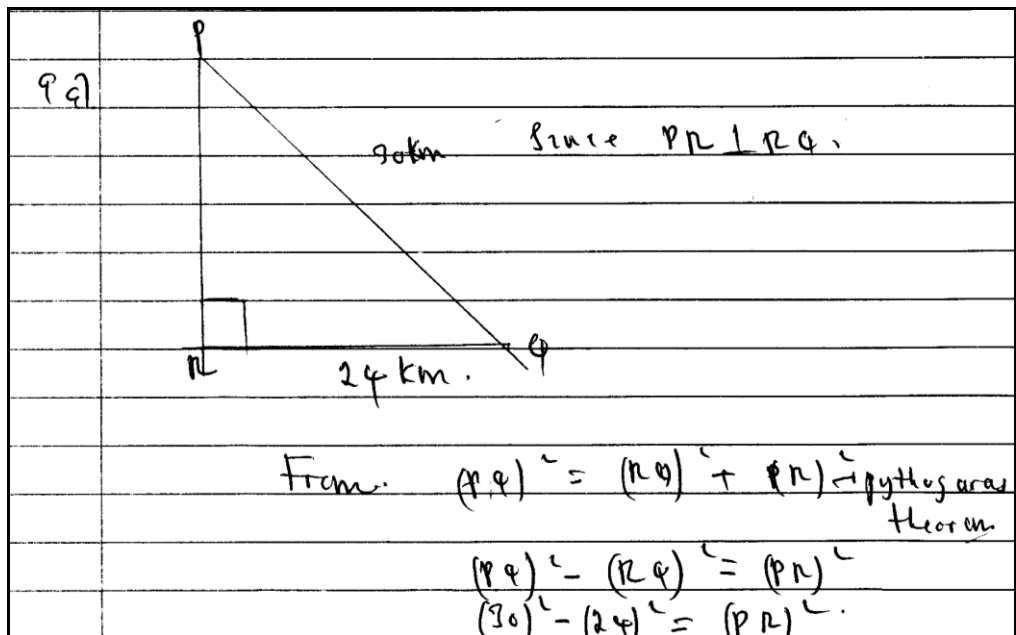 P
9 a)
30km Since PR ⊥ RQ.
R 24 km. Q
From. (PQ)² = (RQ)² + (PR)² → pythogaras
theorem
(PQ)² - (RQ)² = (PR)²
(30)² - (24)² = (PR)².